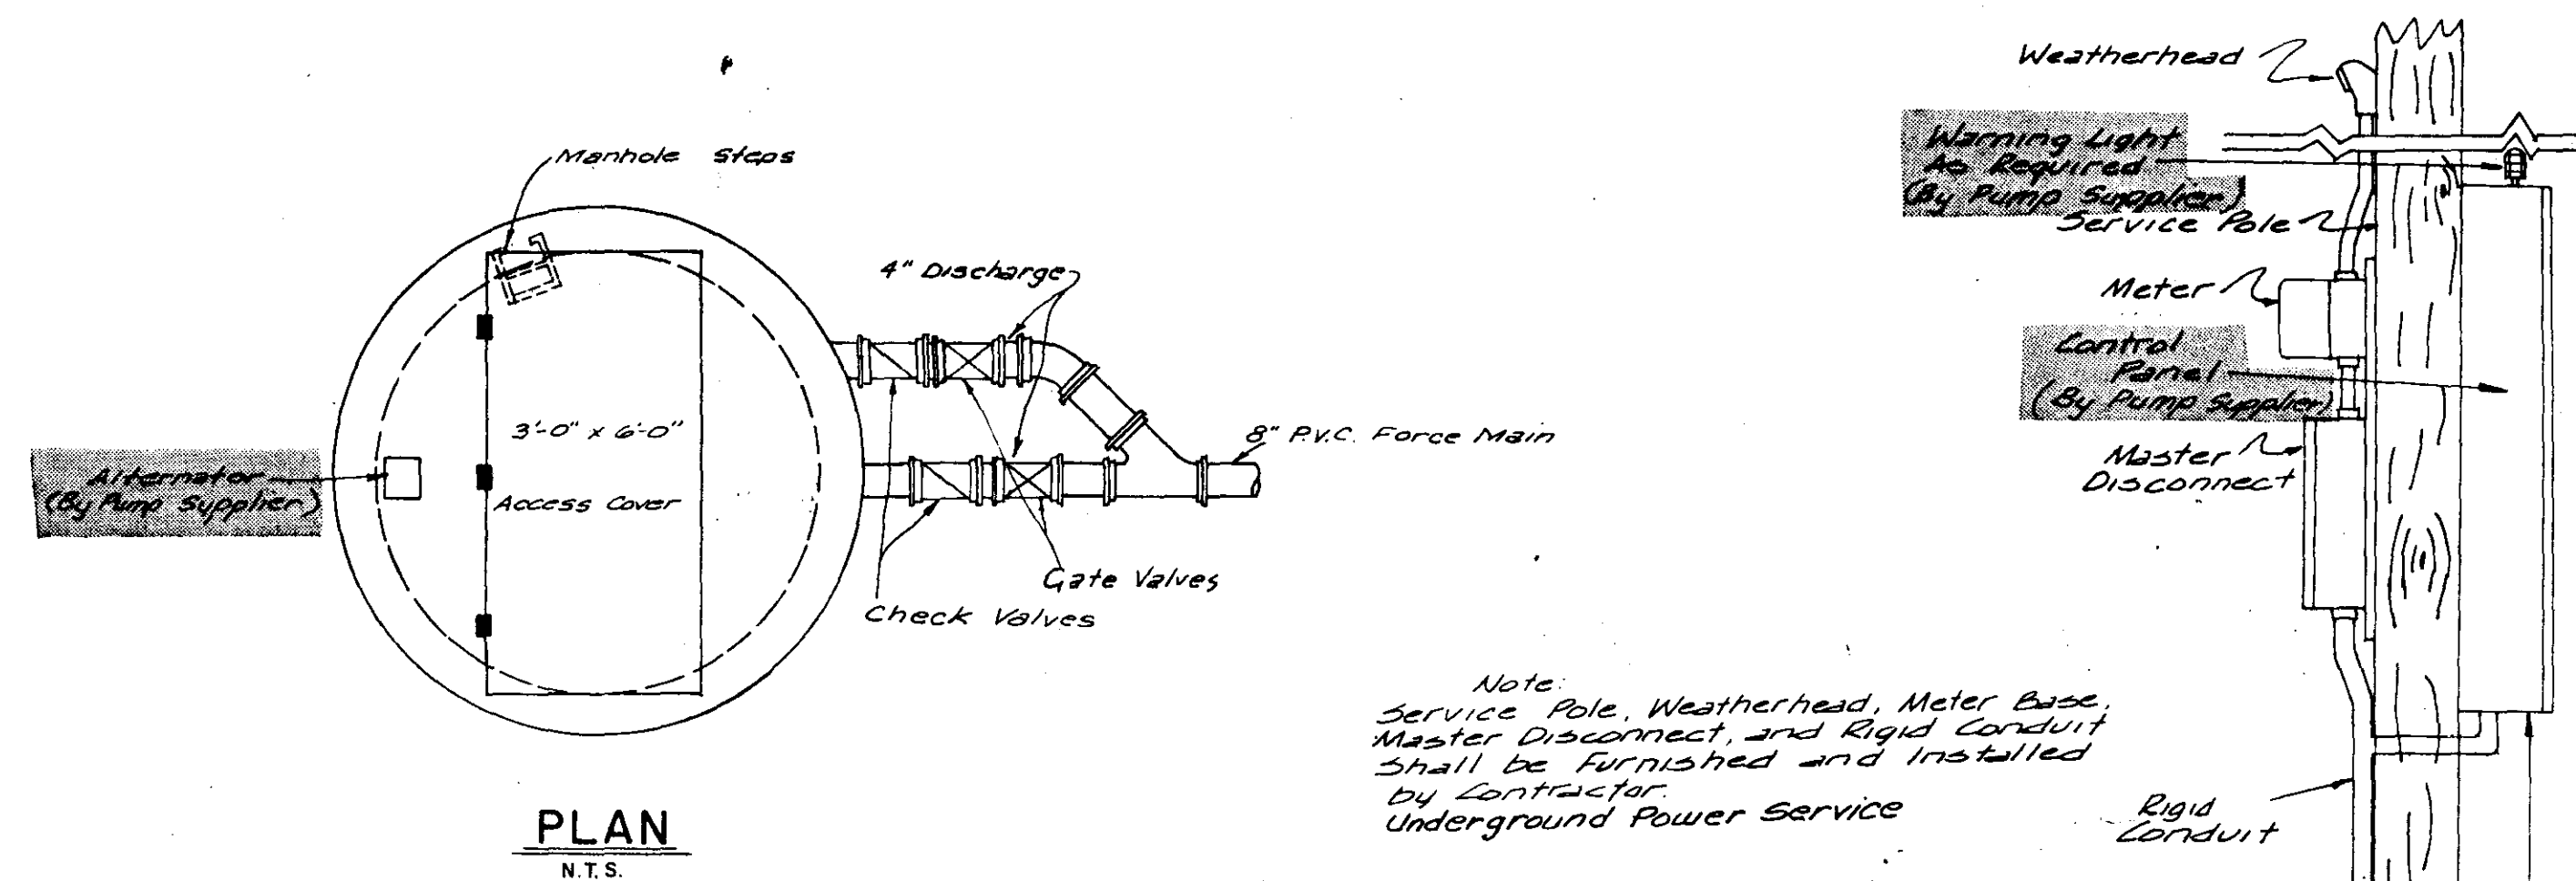 Manhole Steps
4" Discharge
3'-0" x 6'-0"
Access Cover
Alternator
(By Pump Supplier)
8" P.V.C. Force Main
Gate Valves
Check Valves
PLAN
N.T.S.
Weatherhead
Warning Light
As Required
(By Pump Supplier)
Service Pole
Meter
Control
Panel
(By Pump Supplier)
Master
Disconnect
Note:
Service Pole, Weatherhead, Meter Base,
Master Disconnect, and Rigid Conduit
Shall be Furnished and Installed
by Contractor.
Underground Power Service
Rigid
Conduit